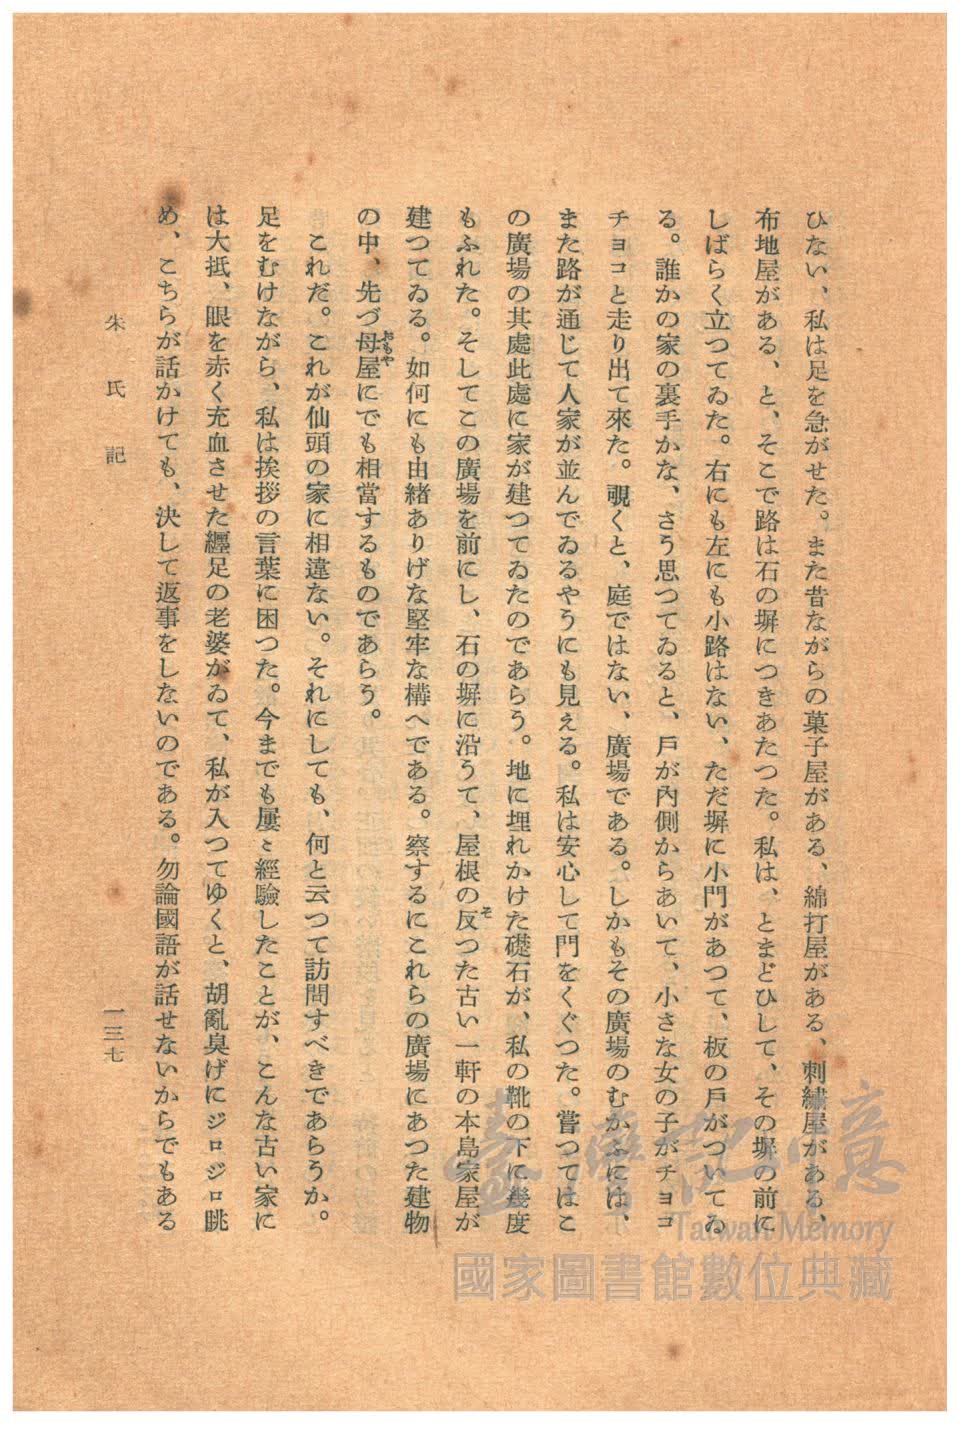 ひない、私は足を急がせた。また昔ながらの菓子屋がある、綿打屋がある、刺繍屋がある、
布地屋がある、と、そこで路は石の塀につきあたつた。私は、とまどひして、その塀の前に
しばらく立つてゐた。右にも左にも小路はない、ただ塀に小門があつて、板の戸がついてゐ
る。誰かの家の裏手かな、さう思つてゐると、戸が內側からあいて、小さな女の子がチョコ
チョコと走り出て來た。覗くと、庭ではない、廣場である。しかもその廣場のむかふには、
また路が通じて人家が並んでゐるやうにも見える。私は安心して門をくぐつた。嘗つてはこ
の廣場の其處此處に家が建つてゐたのであらう。地に埋れかけた礎石が、私の靴の下に幾度
もふれた。そしてこの廣場を前にし、石の塀に沿うて、屋根の反つた古い一軒の本島家屋が
そ
建つてゐる。如何にも由緒ありげな堅牢な構へである。察するにこれらの廣場にあつた建物
の中、先づ母屋にでも相當するものであらう。
おもや
これだ。これが仙頭の家に相違ない。それにしても、何と云つて訪問すべきであらうか。
足をむけながら、私は挨拶の言葉に困つた。今までも屢〻經驗したことが、こんな古い家に
は大抵、眼を赤く充血させた纏足の老婆がゐて、私が入つてゆくと、胡亂臭げにジロジロ眺
め、こちらが話かけても、決して返事をしないのである。勿論國語が話せないからでもある
朱氏記
一三七
臺灣記憶
Taiwan Memory
國家圖書館數位典藏